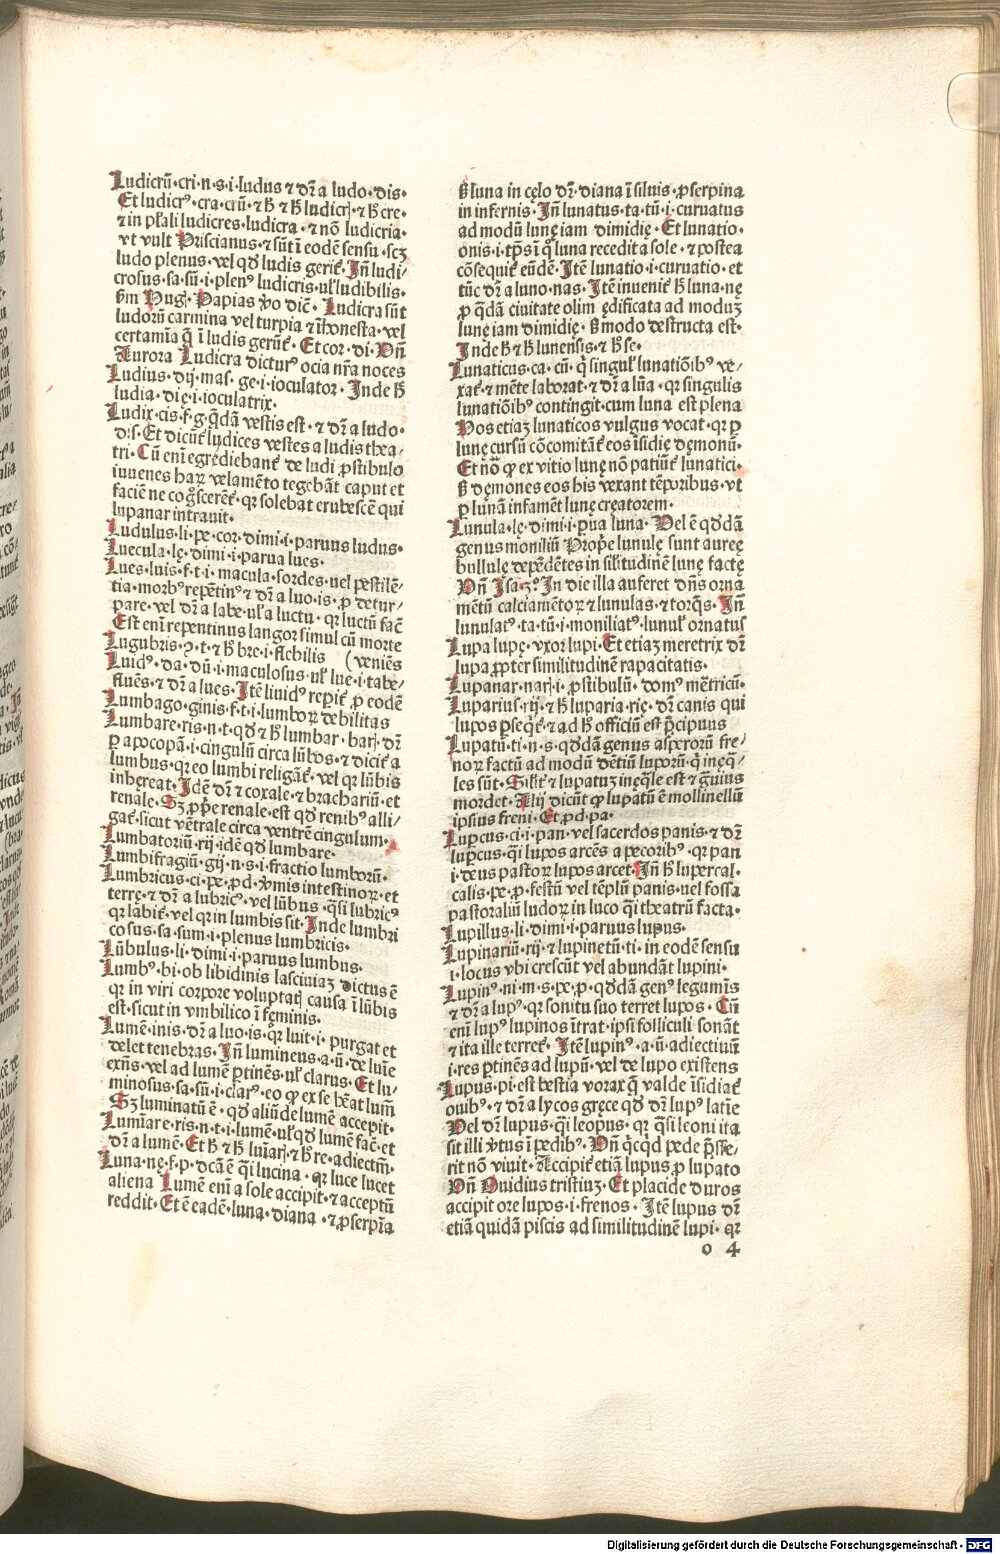 Ludicrū·cri·n·s·i·ludus ⁊ dr̄ a ludo·dis·
Et ludicrꝰ·cra·crū·⁊ h̄ ⁊ h̄ ludicrꝭ·⁊ h̄ cre·
⁊ in pl̄ali ludicres·ludicra·⁊ nō ludicria·
vt vult Priscianus·⁊ sūt ī eodē sensu·scꝫ
ludo plenus·vel qđ ludis gerit᷑·Jn̄ ludi/
crosus·sa·sū·i·plenꝰ ludicris·uł ludibilis·
ẜm Hugꝭ·Papias ꝟo dič·Ludicra sūt
ludorū carmina vel turpia ⁊ īhonesta·vel
certamīa q̄ ī ludis gerūt᷑·Et cor·di·Vn̄
Aurora Ludicra dictur᷒ ocia nr̄a noces
Ludius·dij·mas·ge·i·ioculator·Jnde h̄
ludia·dię·i·ioculatrix·
Ludix·cis·f·g·q̄dā vestis est·⁊ dr̄ a ludo·
dis·Et dicūt᷑ ludices vestes a ludis thea/
tri·Cū enī egrędiebant᷑ de ludi ꝓstibulo
iuuenes haꝝ velamēto tegebāt caput et
faciē ne cog̊sceret᷑·qꝛ solebat erubescē qui
lupanar intrauit·
Ludulus·li·pe·cor·dimi·i·paruus ludus·
Luecula·lę·dimi·i·parua lues·
Lues·luis·f·t·i·macula·sordes·uel pestilē/
tia·morbꝰ repētinꝰ ⁊ dr̄ a luo·is·ꝓ detur/
pare·vel dr̄ a labe·uła luctu·qꝛ luctū fač
Est enī repentinus langor simul cū morte
Lugubris·ꝫ·t·⁊ h̄ bre·i·flebilis (veniēs
Luidꝰ·da·dū·i·maculosus·uł lue·i·tabe/
fluēs·⁊ dr̄ a lues·Jtē liuidꝰ reperit᷑·ꝓ eodē
Lumbago·ginis·f·t·i·lumboꝝ debilitas
Lumbare·ris·n·t·qđ ⁊ h̄ lumbar·barꝭ·dr̄
ꝑ apocopā·i·cingulū circa lūbos·⁊ dicit᷑ a
lumbus·qꝛ eo lumbi religāt᷑·vel qꝛ lūbis
inhęreat·Jdē dr̄ ⁊ coxale·⁊ brachariū·et
renale·Sꝫ ꝓp̄e renale·est qđ renibꝰ alli/
gat᷑·sicut vētrale circa ventrē cingulum·
Lumbatoriū·rij·idē qđ lumbare·
Lumbifragiū·gij·n·s·i·fractio lumborū·
Lumbricus·ci·pe·ꝓd·ꝟmis intestinoꝝ·et
terrę·⁊ dr̄ a lubricꝰ·vel lūbus·q̄si lubricꝰ
qꝛ labit᷑·vel qꝛ in lumbis sit·Jnde lumbri
cosus·sa·sum·i·plenus lumbricis·
Lūbulus·li·dimi·i·paruus lumbus·
Lumbꝰ·bi·ob libidinis lasciuiaꝫ dictus ē
qꝛ in viri corpore voluptatꝭ causa ī lūbis
est·sicut in vmbilico ī fęminis·
Lumē·inis·dr̄ a luo·is·qꝛ luit·i·purgat et
delet tenebras·Jn̄ lumineus·a·ū·de luīe
exn̄s·vel ad lumē ꝑtinēs·uł clarus·Et lu/
minosus·sa·sū·i·clarꝰ·eo ꝙ ex se hēat lum̄
Sꝫ luminatū ē·qđ aliūde lumē accepit·
Lumīare·ris·n·t·i·lumē·uł qđ lumē fač·et
dr̄ a lumē·Et h̄ ⁊ h̄ luīarꝭ·⁊ h̄ re·adiectīn̄·
Luna·nę·f·p·dc̄a ē q̄i lucina·qꝛ luce lucet
aliena Lumē enī a sole accipit·⁊ acceptū
reddit·Et ē eadē·luna·diana·⁊ ꝓserpīa
ẜ luna in cęlo dr̄·diana ī siluis·ꝓserpina
in infernis·Jn̄ lunatus·ta·tū·i·curuatus
ad modū lunę iam dimidię·Et lunatio·
onis·i·tp̄s ī q̊ luna recedit a sole·⁊ postea
cōsequit᷑ eūdē·Jtē lunatio·i·curuatio·et
tūc dr̄ a luno·nas·Jtē inuenit᷑ h̄ luna·nę
ꝓ q̄dā ciuitate olim ędificata ad moduꝫ
lunę iam dimidię·ẜ modo destructa est·
Jnde h̄ ⁊ h̄ lunensis·⁊ h̄ se·
Lunaticus·ca·cū·q̇ singuł lunatiōibꝰ ve/
xat᷑·⁊ mēte laborat·⁊ dr̄ a lūa·qꝛ singulis
lunatiōibꝰ contingit·cum luna est plena
Hos etiaꝫ lunaticos vulgus vocat·qꝛ ꝑ
lunę cursū cōcomitāt᷑ eos īsidię dęmonū·
Et nō ꝙ ex vitio lunę nō patiūt᷑ lunatici·
ẜ dęmones eos his vexant tēporibus·vt
ꝑ lunā infamēt lunę creatorem·
Lunula·lę·dimi·i·ꝑua luna·Vel ē qđdā
genus moniliū Prop̄e lunulę sunt aureę
bullulę depēdētes in silitudinē lunę factę
Vn̄ Jsa·ꝫ°·Jn die illa auferet dn̄s orna
mētū calciamētoꝝ ⁊ lunulas·⁊ torq̄s·Jn̄
lunulatꝰ·ta·tū·i·moniliatꝰ·lunuł ornatus
Lupa lupę·vxor lupi·Et etiaꝫ meretrix dr̄
lupa ꝓpter similitudinē rapacitatis·
Lupanar·narꝭ·i·ꝓstibulū·domꝰ męꝛtricū·
Luparius·rij·⁊ h̄ luparia·rię·dr̄ canis qui
lupos ꝑseq̇t᷑·⁊ ad h̄ officiū est p̄cipuus
Lupatū·ti·n·s·qđdā genus asperorū fre/
noꝝ factū ad modū dētiū luporū·q̇ inęq̄/
les sūt·Silit᷑ ⁊ lupatuꝫ inęq̄le est ⁊ g̊uius
mordet·Alij dicūt ꝙ lupatū ē mollinellū
ipsius freni·Et ꝓd·pa·
Luꝑcus·ci·i·pan·vel sacerdos panis·⁊ dr̄
luꝑcus·q̄i lupos arcēs a pecoribꝰ·qꝛ pan
i·deus pastoꝝ lupos arcet·Jn̄ h̄ lupercal·
calis·pe·ꝓ·festū vel tēplū panis·uel fossa
pastoraliū ludoꝝ in luco q̄i theatrū facta·
Lupillus·li·dimi·i·paruus lupus·
Lupinariū·rij·⁊ lupinetū·ti·in eodē sensu
i·locus vbi crescūt vel abundāt lupini·
Lupinꝰ·ni·m·s·pe·ꝓ·qđdā genꝰ legumīs
⁊ dr̄ a lupꝰ·qꝛ sonitu suo terret lupos·Cū
enī lupꝰ lupinos ītrat·ip̄i folliculi sonāt
⁊ ita ille terret᷑·Jtē lupinꝰ·a·ū·adiectiuū
i·res ꝑtinēs ad lupū·vel de lupo existens
Lupus·pi·est bestia vorax q̄ valde īsidiat᷑
ouibꝰ·⁊ dr̄ a lycos gręce qđ dr̄ lupꝰ latīe
Vel dr̄ lupus·q̄i leopus·qꝛ q̄si leoni ita
sit illi ꝟtus ī pedibꝰ·Vn̄ q̇cq̇d pede p̄sse/
rit nō viuit·Accipit᷑ etiā lupus ꝓ lupato
Vn̄ Ouidius tristiuꝫ·Et placide duros
accipit ore lupos·i·frenos·Jtē lupus dr̄
etiā quidā piscis ad similitudinē lupi·qꝛ
o 4
Digitalisierung gefördert durch die Deutsche Forschungsgemeinschaft - DFG